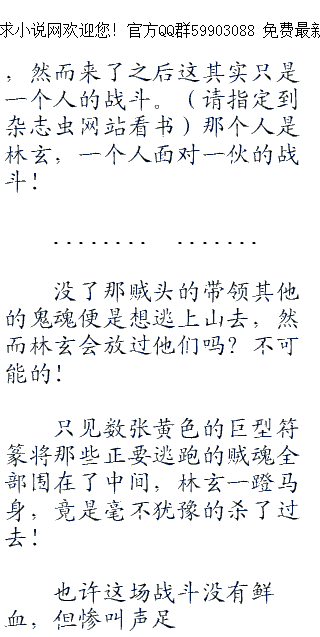 求小说网欢迎您！官方QQ群59903088 免费最新
，然而来了之后这其实只是
一个人的战斗。（请指定到
杂志虫网站看书）那个人是
林玄，一个人面对一伙的战
斗！
........ .......
没了那贼头的带领其他
的鬼魂便是想逃上山去，然
而林玄会放过他们吗？不可
能的！
只见数张黄色的巨型符
篆将那些正要逃跑的贼魂全
部围在了中间，林玄一蹬马
身，竟是毫不犹豫的杀了过
去！
也许这场战斗没有鲜
血，但惨叫声足